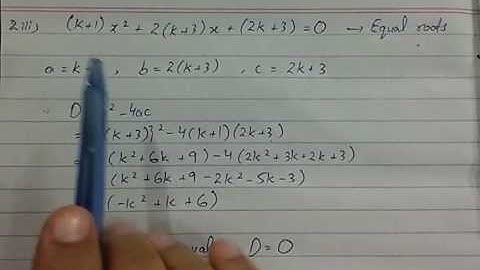 2.iii) (k+1)x² + 2(k+3)x + (2k+3) = 0 → Equal roots.
a = k , b = 2(k+3) , c = 2k+3
∴ D ² - 4ac
= (k+3)}² - 4(k+1)(2k+3)
= (k²+6k+9) - 4(2k²+3k+2k+3)
(k²+6k+9-2k²-5k-3)
(-k²+k+6)
D = 0